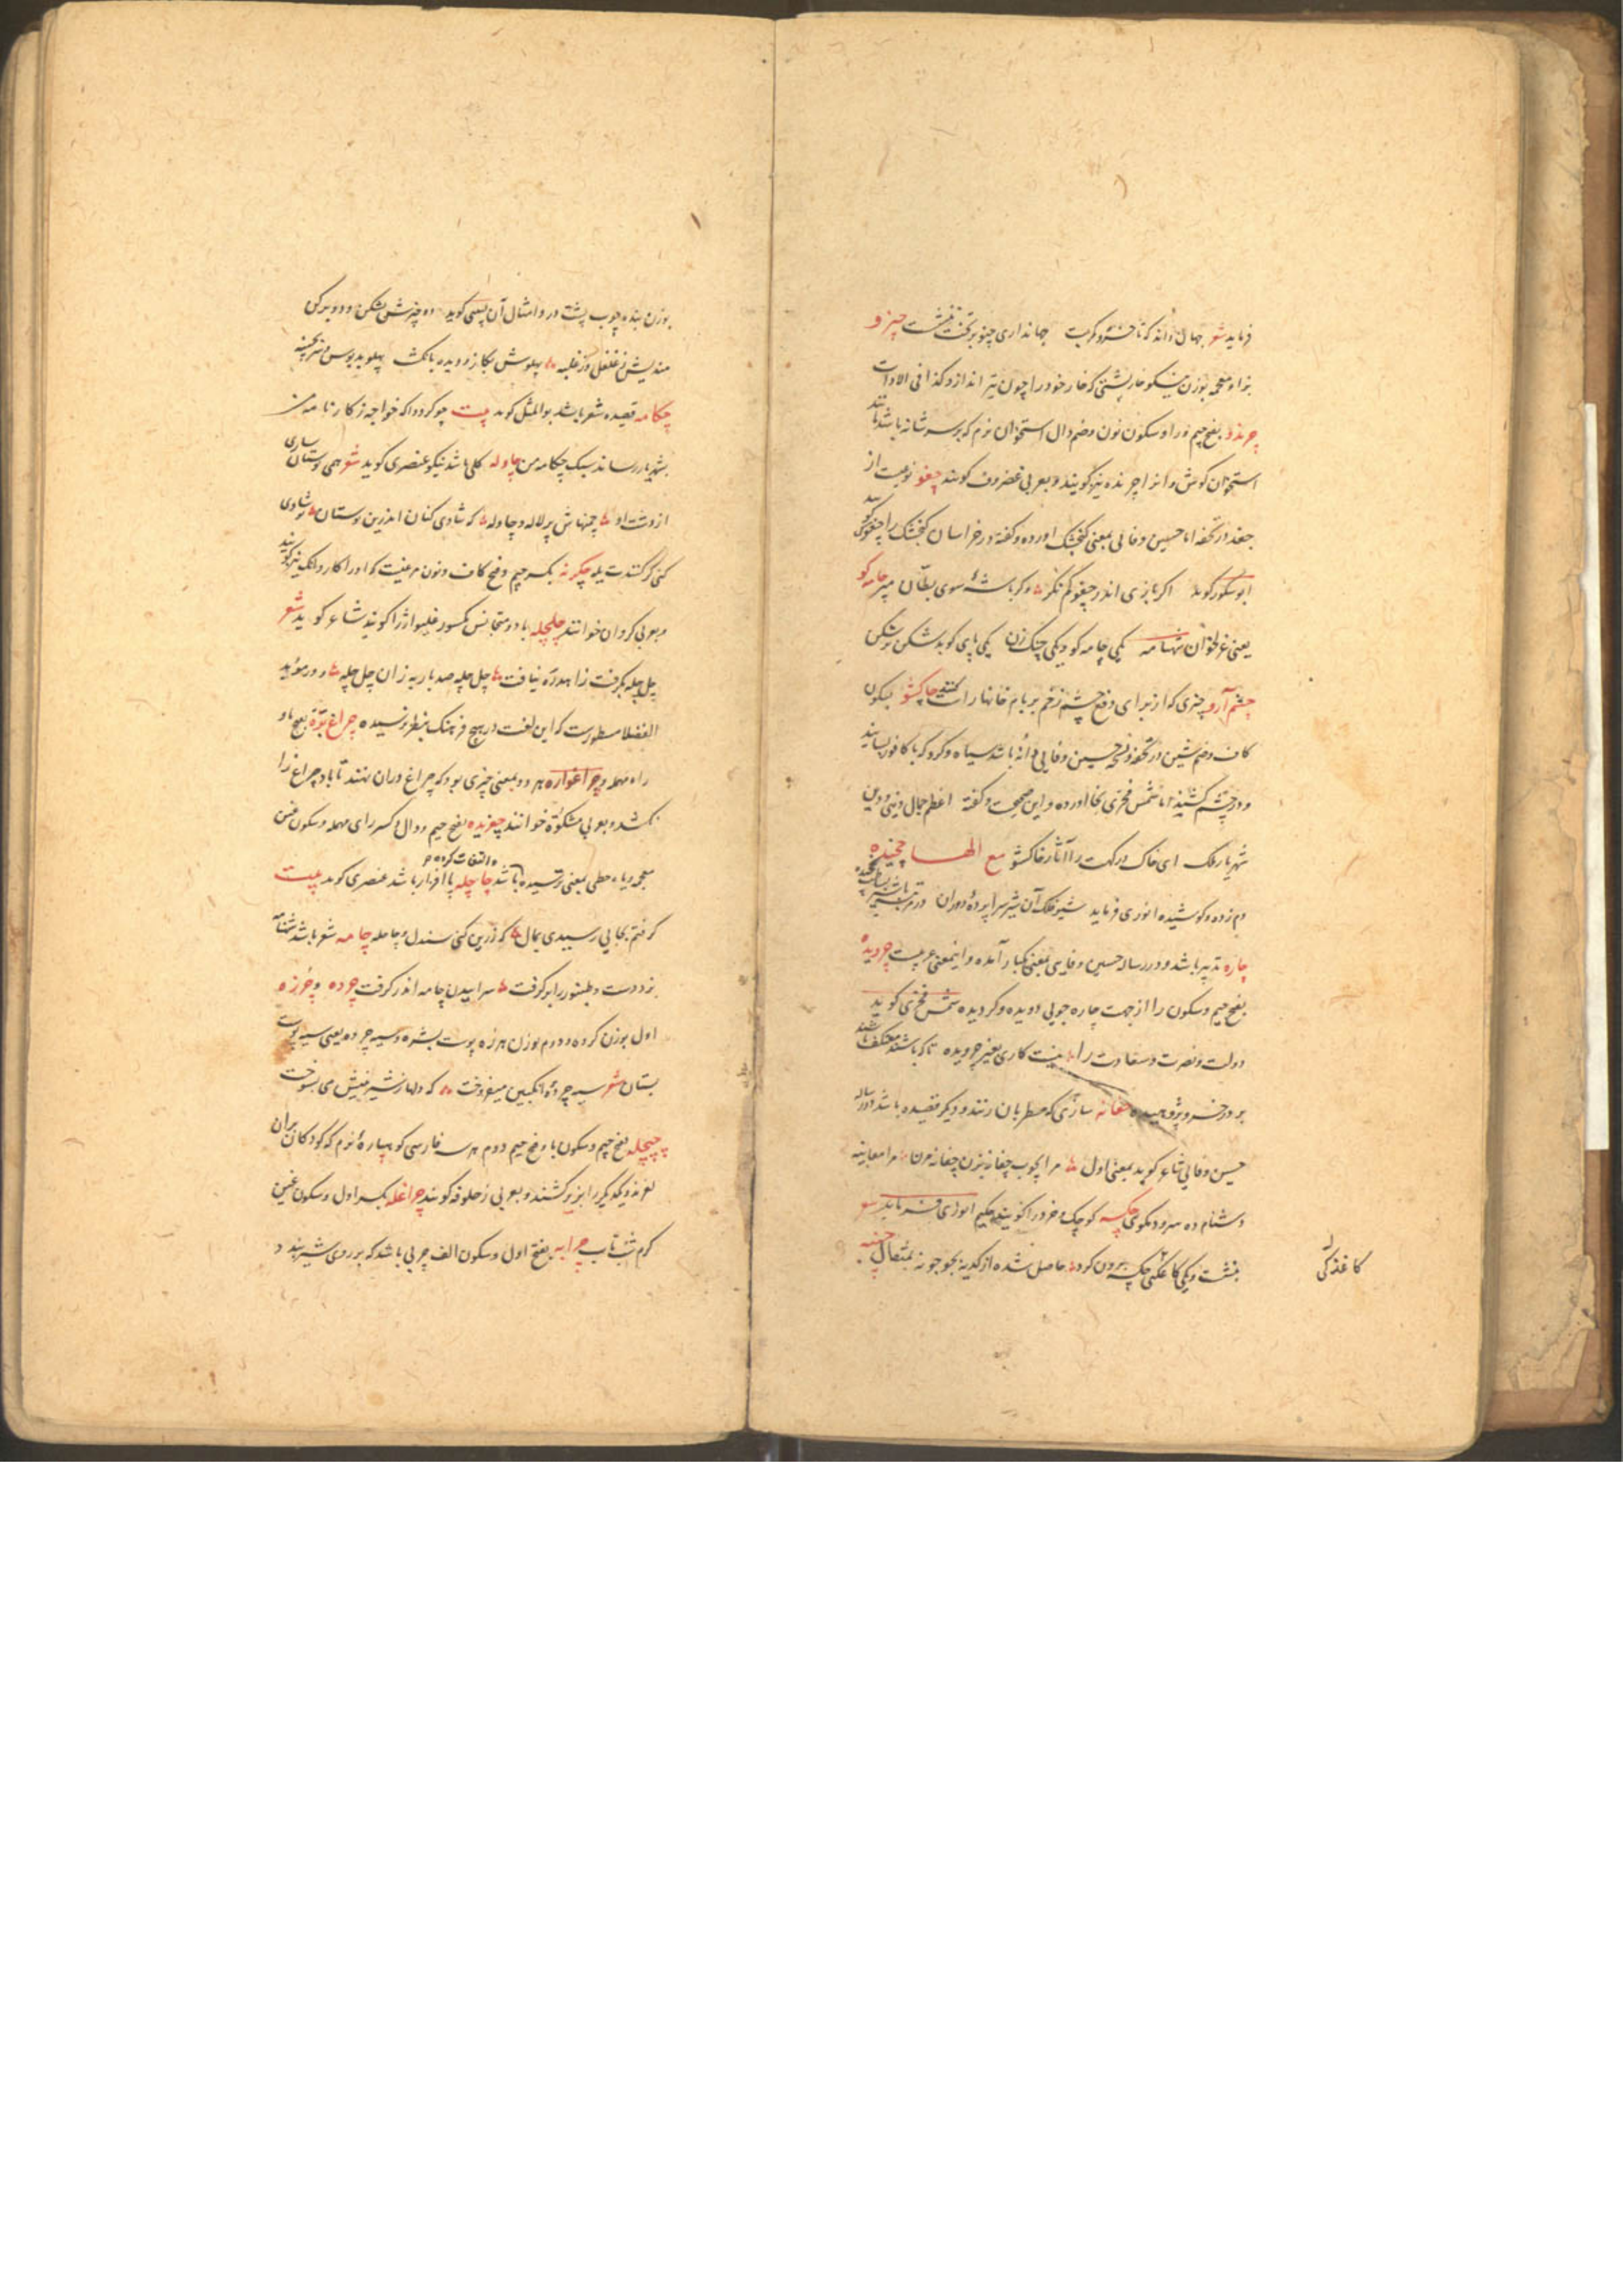 فرماید شعر جهان داند که تا خسرو کمر بست جهانداری چنو بر تخت ننشست چیزو
بزاء معجمه بوزن نیکو خارپشتی که خار خود را چون تیر اندازد کذا فی الادات
چرندو بفتح جیم و را و سکون نون و ضم دال استخوان نرم که بر سر شانه باشد مانند
استخوان کوش و انرا چرنده نیز کویند و بعربی غضروف کویند چغو نوعیست از
جغد در تحفه اما حسین وفایی بمعنی کنجشک اورده و کفته در خراسان کنجشک را چغو کویند
ابوشکور کوید اکر بازی اندر چغو کم نکر و کر باشهٔ سوی بطان مپر چامه کو
یعنی غزلخوان شهنامه یکی چامه کو و یکی چنک زن یکی پای کوبد شکن بر شکن
چشم آرو چیزی که از برای دفع چشم زخم بر بام خانها راست کنند چاکشو بسکون
کاف و ضم شین در تحفه و نسخه حسین وفایی دانهٔ باشد سیاه و کرد که با کافور بسایند
و در چشم کشند اما شمس فخری بخا اورده و این صحیحست و کفته اعظم جمال دنیی و دین
شهریار ملک ای خاک درکهت را آثار خاکشو مع الهـا چخیده
دم زده و کوشیده انوری فرماید شیر فلک آن شیر سراپردهٔ دوران
چاره تدبیر باشد و در رساله حسین وفایی بمعنی یکبار آمده و اینمعنی عربیست چرویده
بفتح جیم و سکون را از جهت چاره جویی دویده و کردیده شمس فخری کوید
دولت و نصرت و سعادت را نیست کاری بغیر چرویده تا که باشند معتکف باشند
بر در خسرو پژوهیده چغانه سازی که مطربان زنند و دیکر قصیده باشد در رساله
حسین وفایی شاعر کوید بمعنی اول مرا بچوب چغانه بزن چغانه مزن مرا معاینه
دشنام ده سرود مکوی چکسه کوچک و خرد را کویند حکیم انوری فرماید شعر
بنشست و یکی کاغدکی چکسه برون کرد حاصل شده از کدیه بجوجو نه بمثقال چنبه
کاغذکی
بوزن بنده چوب پشت در و امثال آن پیسی کوید
مندیش ز غلغل و ز غلبه پهلوش بکاز و دیده بانکشت
چکامه قصیده شعر باشد بوالمثل کوید بیت چو کردد آکه خواجه ز کارنامه من
بشهریار رساند سبک چکامه من چاوله کلی باشد نیکو عنصری کوید شعر همی بوستان سازی
از دشت او چمنهاش پر لاله و چاوله که شادی کنان اندرین بوستان
چکرنه بکسر جیم و فتح کاف و نون مرغیست که او را کاروانک نیز کویند
و بعربی کروان خوانند چلچله با دو متجانس مکسور غلیواژ را کویند شاعر کوید شعر
چل چله بکرفت زاهد ره نیافت چل چله صد بار به زان چل چله و در مؤید
الفضلا مسطورست که این لغت در هیچ فرهنک بنظر نرسیده چراغ بره بفتح با و
راء مهمله و چراغواره هر دو بمعنی چیزی بود که چراغ در ان نهند تا باد چراغ را
نکشد و بعربی مشکوة خوانند چغزیده بفتح جیم و دال و کسر رای مهمله و سکون غین
معجمه و یاء حطی بمعنی ترسیده و التفات کرده باشد چاچله پا افزار باشد عنصری کوید بیت
کرفتم بجایی رسیدی بمال که زرین کنی سندل و چاچله چامه شعر باشد شهنامه
بزد دست و طنبور را بر کرفت سراییدن چامه اندر کرفت چرده و چرزه
اول بوزن کرده و دوم بوزن هرزه پوست بشره و سیه چرده یعنی سیه پوست
بستان شعر سیه چردهٔ انکبین میفروخت که دلها ز شیرینیش می بسوخت
چپچله بفتح جیم و سکون با و فتح جیم دوم هر سه فارسی کوهپارهٔ نرم که کودکان بران
لغزند و یکدیکر را بزیر کشند و بعربی زحلوقه کویند چراغله بکسر اول و سکون غین
کرم شب تاب چرابه بفتح اول و سکون الف چربی باشد که بر روی شیر بندد